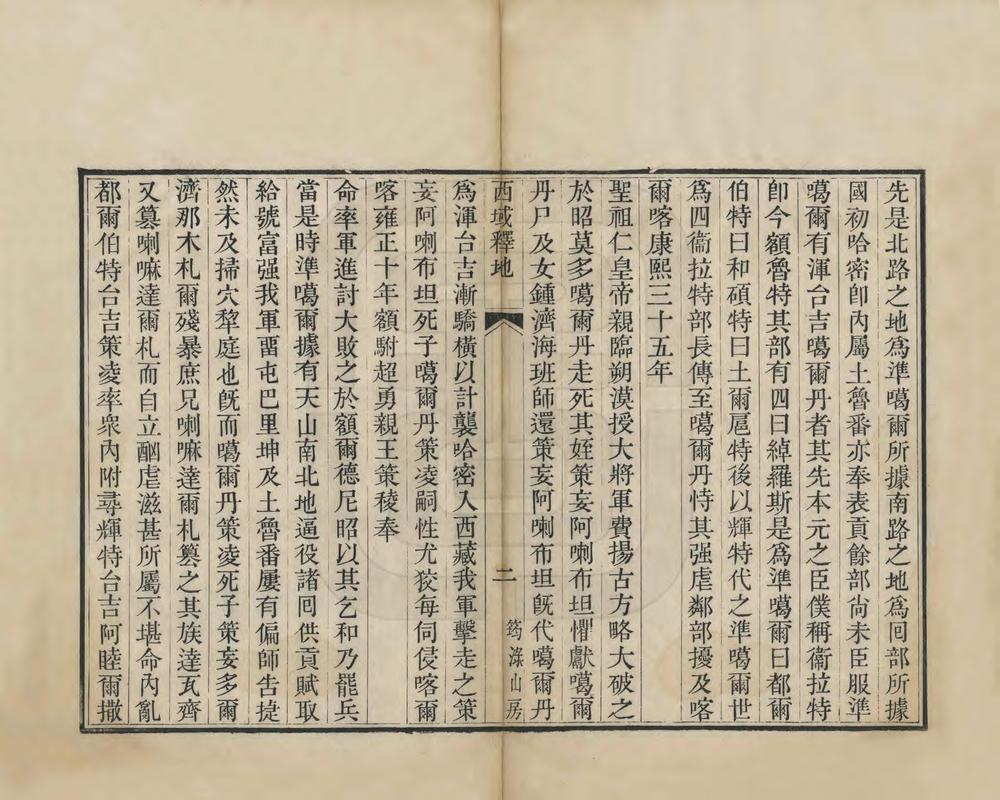 先是北路之地爲準噶爾所據南路之地爲回部所據
國初哈密卽內屬土魯番亦奉表貢餘部尙未臣服準
噶爾有渾台吉噶爾丹者其先本元之臣僕稱衞拉特
卽今額魯特其部有四曰綽羅斯是爲準噶爾曰都爾
伯特曰和碩特曰土爾扈特後以輝特代之準噶爾世
爲四衞拉特部長傳至噶爾丹恃其强虐鄰部擾及喀
爾喀康熙三十五年
聖祖仁皇帝親臨朔漠授大將軍費揚古方略大破之
於昭莫多噶爾丹走死其姪策妄阿喇布坦懼獻噶爾
丹尸及女鍾濟海班師還策妄阿喇布坦旣代噶爾丹
西域釋地
二
筠淥山房
爲渾台吉漸驕橫以計襲哈密入西藏我軍擊走之策
妄阿喇布坦死子噶爾丹策凌嗣性尤狡每伺侵喀爾
喀雍正十年額駙超勇親王策稜奉
命率軍進討大敗之於額爾德尼昭以其乞和乃罷兵
當是時準噶爾據有天山南北地逼役諸回供貢賦取
給號富强我軍畱屯巴里坤及土魯番屢有偏師吿捷
然未及掃穴犂庭也旣而噶爾丹策凌死子策妄多爾
濟那木札爾殘暴庶兄喇嘛達爾札篡之其族達瓦齊
又篡喇嘛達爾札而自立酗虐滋甚所屬不堪命內亂
都爾伯特台吉策凌率衆內附尋輝特台吉阿睦爾撒